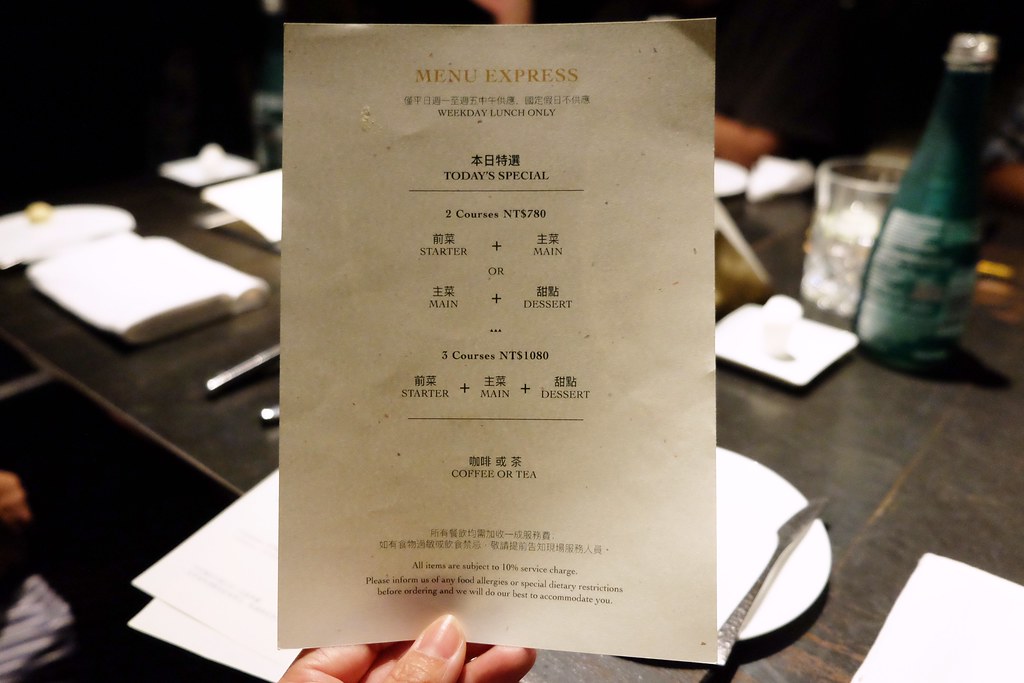 MENU EXPRESS
僅平日週一至週五中午供應，國定假日不供應
WEEKDAY LUNCH ONLY
本日特選
TODAY'S SPECIAL
2 Courses NT$780
前菜 + 主菜
STARTER MAIN
OR
主菜 + 甜點
MAIN DESSERT
3 Courses NT$1080
前菜 + 主菜 + 甜點
STARTER MAIN DESSERT
咖啡 或 茶
COFFEE OR TEA
所有餐飲均需加收一成服務費，
如有食物過敏或飲食禁忌，敬請提前告知現場服務人員。
All items are subject to 10% service charge.
Please inform us of any food allergies or special dietary restrictions
before ordering and we will do our best to accommodate you.